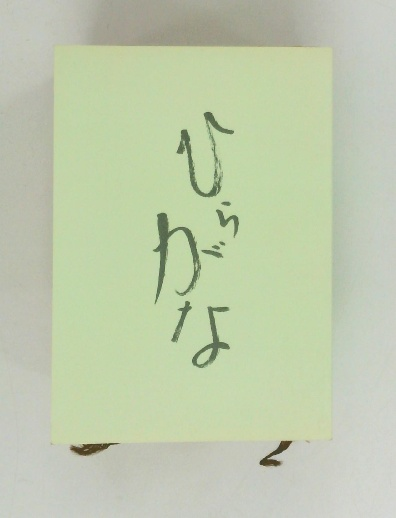 ひらがな